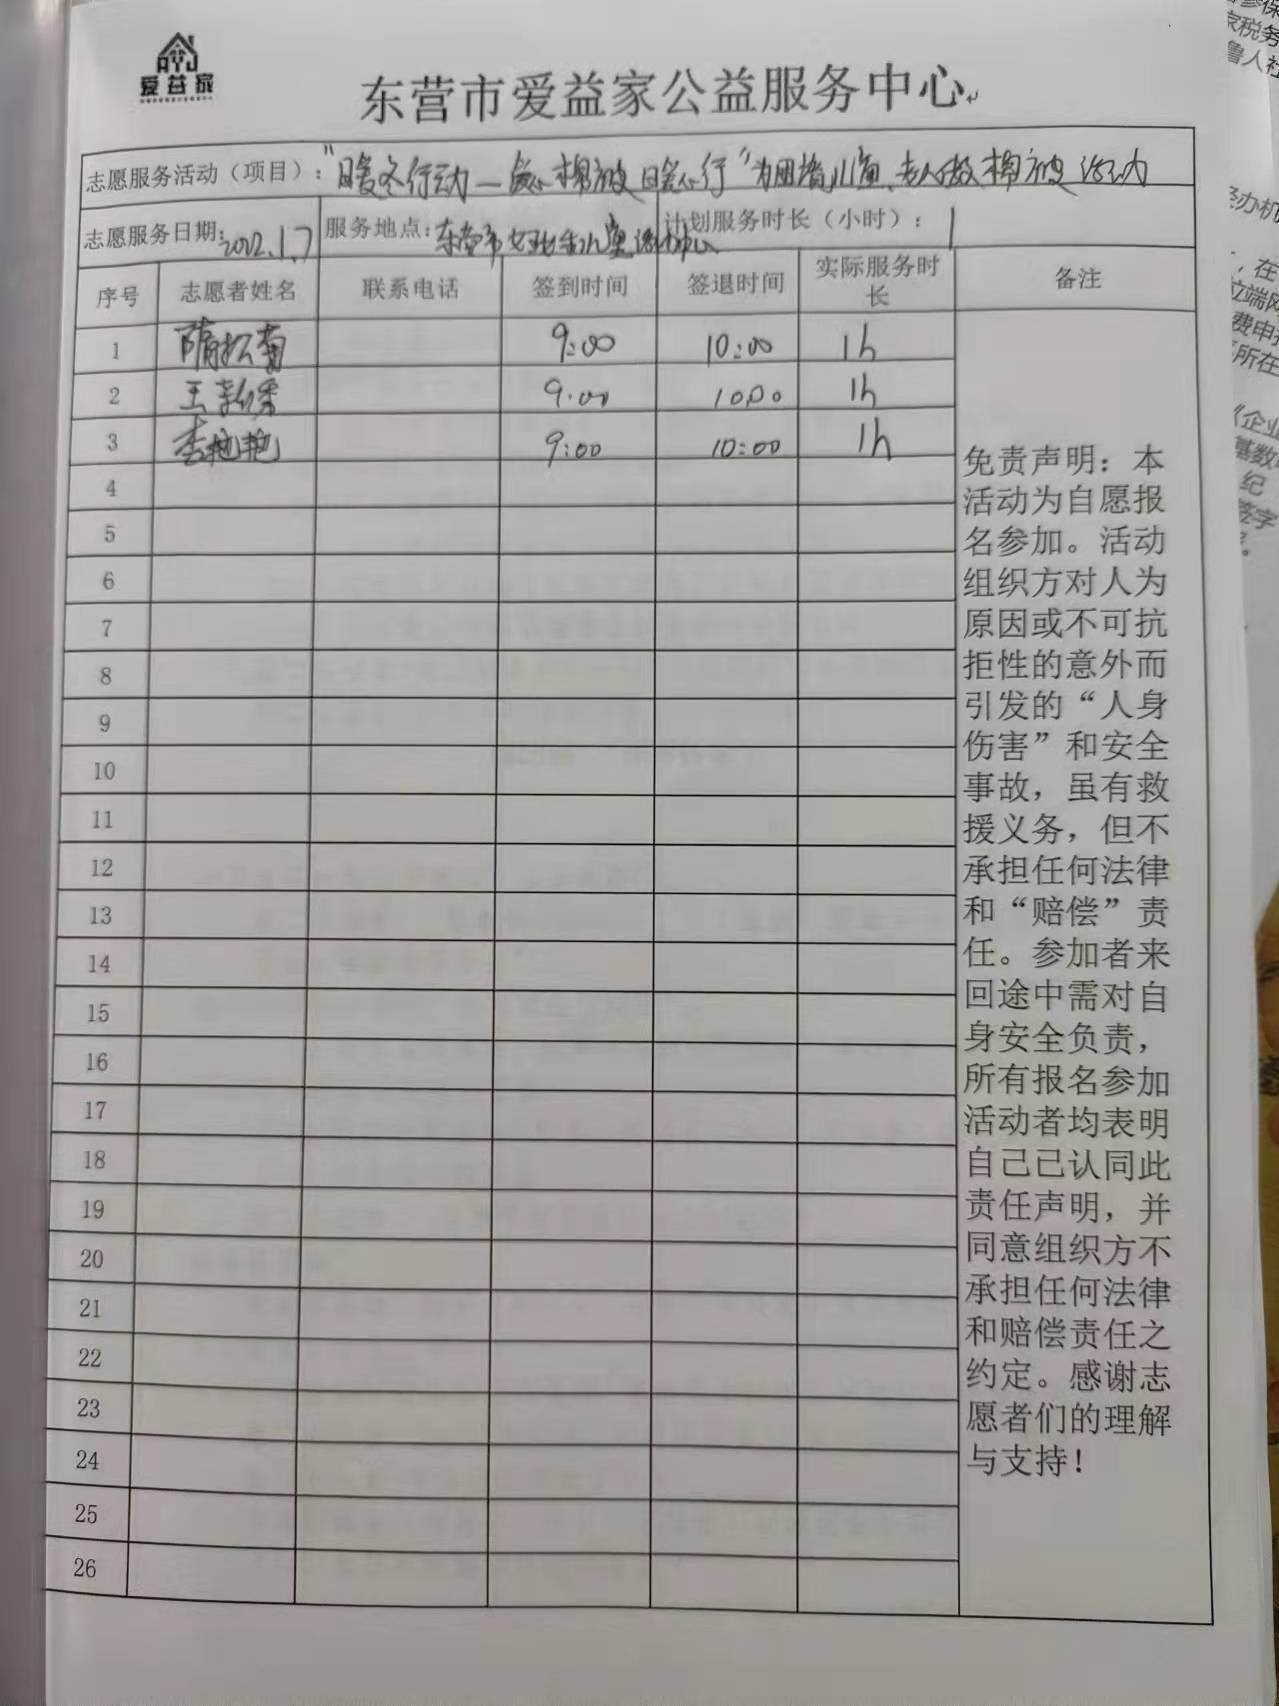 爱益家
东营市爱益家公益服务中心
志愿服务活动（项目）：“暖冬行动—爱心棉被 暖心行”为困境儿童、老人做棉被活动
志愿服务日期：2022.1.7 服务地点：东营市 计划服务时长（小时）：1
序号 志愿者姓名 联系电话 签到时间 签退时间 实际服务时长 备注
1 隋松菊 9:00 10:00 1h
2 王 9:00 10:00 1h
3 李艳艳 9:00 10:00 1h
4
5
6
7
8
9
10
11
12
13
14
15
16
17
18
19
20
21
22
23
24
25
26
免责声明：本
活动为自愿报
名参加。活动
组织方对人为
原因或不可抗
拒性的意外而
引发的“人身
伤害”和安全
事故，虽有救
援义务，但不
承担任何法律
和“赔偿”责
任。参加者来
回途中需对自
身安全负责，
所有报名参加
活动者均表明
自己已认同此
责任声明，并
同意组织方不
承担任何法律
和赔偿责任之
约定。感谢志
愿者们的理解
与支持！
家税务
鲁人社
经办机
，在
立端网
费申报
所在
《企业
基数
纪
签字